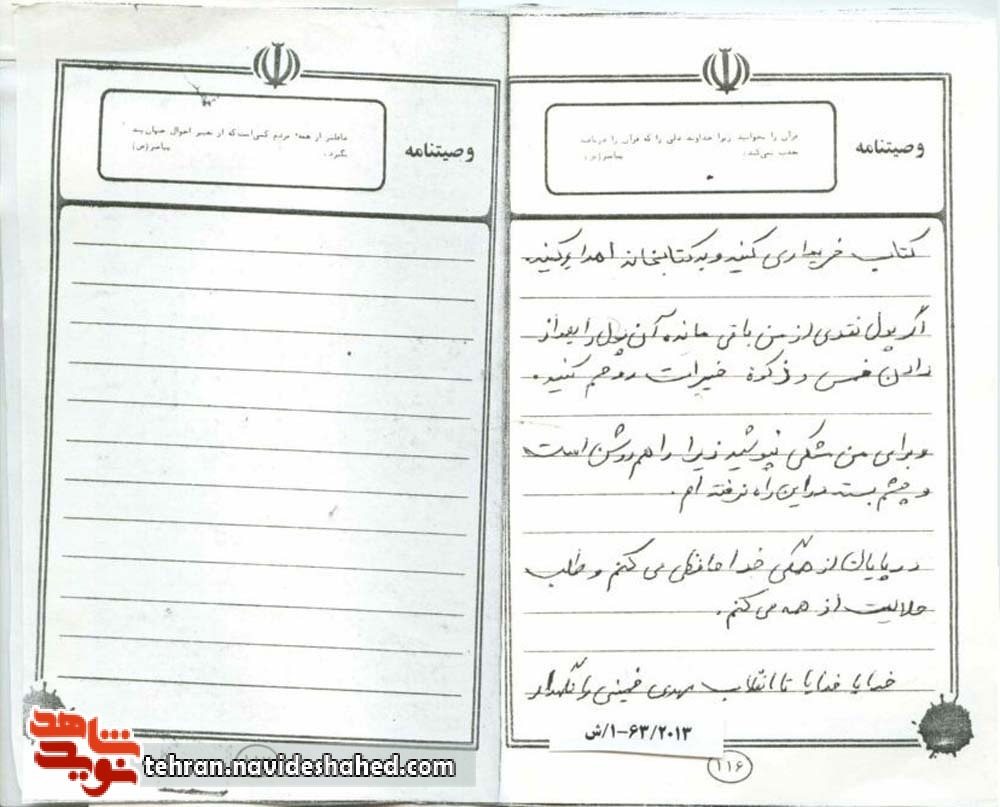 وصیتنامه
قرآن را بخوانید زیرا خداوند دلی را که قرآن را دریافته
عذب نمی‌کند.
پیامبر (ص)
کتاب خریداری کنید و به کتابخانه اهدا کنید.
اگر پول نقدی از من باقی مانده آن پول را بعد از
دادن خمس و ذکوة خیرات روحم کنید.
و برای من مشکی نپوشید زیرا راهم روشن است
و چشم بسته در این راه نرفته ام.
در پایان از همگی خداحافظی می کنم و طلب
حلالیت از همه می کنم.
خدایا خدایا تا انقلاب مهدی خمینی را نگهدار
۱-۶۳/۲۰۱۳/ش
۱۱۶
وصیتنامه
غافلتر از همه مردم کسی است که از تغییر احوال جهان پند
نگیرد.
پیامبر (ص)
نوید شاهد
tehran.navideshahed.com